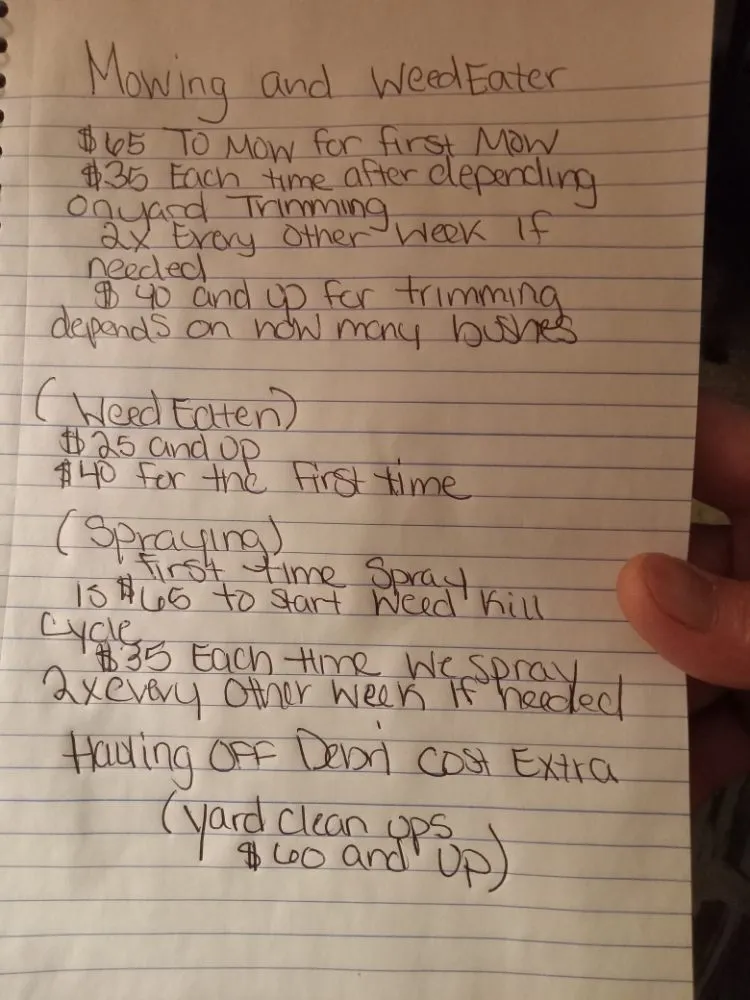 Mowing and WeedEater
$65 To Mow for first Mow
$35 Each time after depending
on yard Trimming
2x Every Other Week If
needed
$40 and up for trimming
depends on how many bushes
(Weed Eaten)
$25 and up
$40 for the first time
(Spraying)
first time Spray
is $65 to start weed kill
Cycle
$35 Each time we spray
2x every other week if needed
Hauling OFF Debri Cost Extra
(yard clean ups
$60 and up)